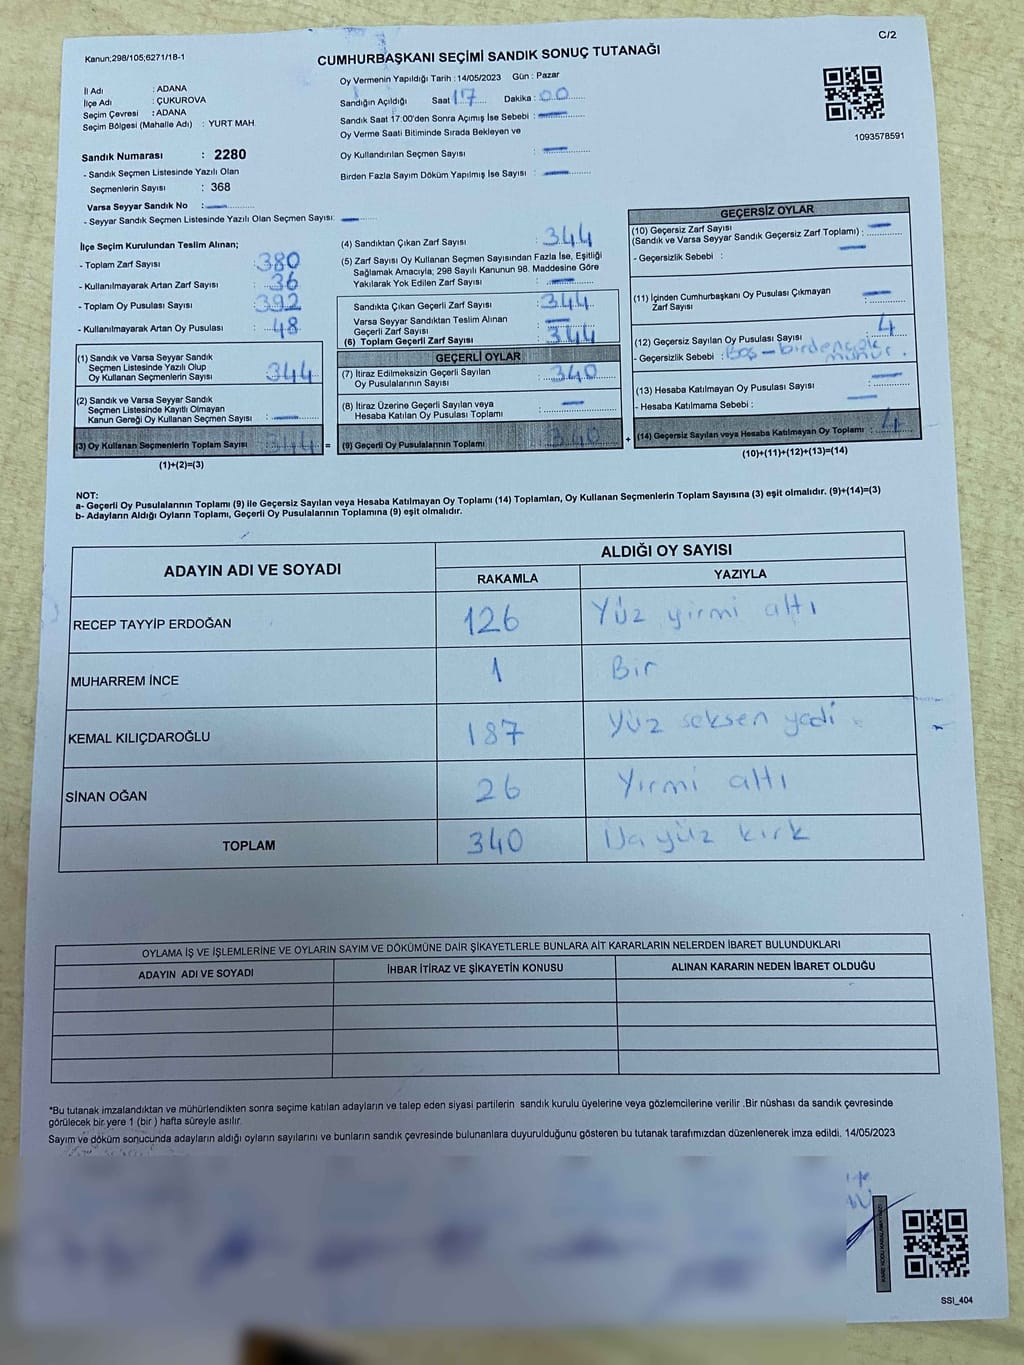 C/2
Kanun;298/105;6271/18-1
CUMHURBAŞKANI SEÇİMİ SANDIK SONUÇ TUTANAĞI
İl Adı : ADANA
İlçe Adı : ÇUKUROVA
Seçim Çevresi : ADANA
Seçim Bölgesi (Mahalle Adı) : YURT MAH.
Sandık Numarası : 2280
- Sandık Seçmen Listesinde Yazılı Olan
Seçmenlerin Sayısı : 368
Varsa Seyyar Sandık No :
- Seyyar Sandık Seçmen Listesinde Yazılı Olan Seçmen Sayısı:
Oy Vermenin Yapıldığı Tarih : 14/05/2023 Gün : Pazar
Sandığın Açıldığı Saat 17 Dakika : 00
Sandık Saat 17:00'den Sonra Açımış İse Sebebi :
Oy Verme Saati Bitiminde Sırada Bekleyen ve
Oy Kullandırılan Seçmen Sayısı :
Birden Fazla Sayım Döküm Yapılmış İse Sayısı :
1093578591
İlçe Seçim Kurulundan Teslim Alınan;
- Toplam Zarf Sayısı : 380
- Kullanılmayarak Artan Zarf Sayısı : 36
- Toplam Oy Pusulası Sayısı : 392
- Kullanılmayarak Artan Oy Pusulası : 48
(1) Sandık ve Varsa Seyyar Sandık
Seçmen Listesinde Yazılı Olup
Oy Kullanan Seçmenlerin Sayısı : 344
(2) Sandık ve Varsa Seyyar Sandık
Seçmen Listesinde Kayıtlı Olmayan
Kanun Gereği Oy Kullanan Seçmen Sayısı :
(3) Oy Kullanan Seçmenlerin Toplam Sayısı : 344 =
(1)+(2)=(3)
(4) Sandıktan Çıkan Zarf Sayısı : 344
(5) Zarf Sayısı Oy Kullanan Seçmen Sayısından Fazla İse, Eşitliği
Sağlamak Amacıyla; 298 Sayılı Kanunun 98. Maddesine Göre
Yakılarak Yok Edilen Zarf Sayısı :
Sandıkta Çıkan Geçerli Zarf Sayısı : 344
Varsa Seyyar Sandıktan Teslim Alınan
Geçerli Zarf Sayısı :
(6) Toplam Geçerli Zarf Sayısı : 344
GEÇERLİ OYLAR
(7) İtiraz Edilmeksizin Geçerli Sayılan
Oy Pusulalarının Sayısı : 340
(8) İtiraz Üzerine Geçerli Sayılan veya
Hesaba Katılan Oy Pusulası Toplamı :
(9) Geçerli Oy Pusulalarının Toplamı : 340 +
GEÇERSİZ OYLAR
(10) Geçersiz Zarf Sayısı
(Sandık ve Varsa Seyyar Sandık Geçersiz Zarf Toplamı) :
- Geçersizlik Sebebi :
(11) İçinden Cumhurbaşkanı Oy Pusulası Çıkmayan
Zarf Sayısı :
(12) Geçersiz Sayılan Oy Pusulası Sayısı : 4
- Geçersizlik Sebebi : Boş - birden çok
mühür.
(13) Hesaba Katılmayan Oy Pusulası Sayısı :
- Hesaba Katılmama Sebebi :
(14) Geçersiz Sayılan veya Hesaba Katılmayan Oy Toplamı : 4
(10)+(11)+(12)+(13)=(14)
NOT:
a- Geçerli Oy Pusulalarının Toplamı (9) ile Geçersiz Sayılan veya Hesaba Katılmayan Oy Toplamı (14) Toplamları, Oy Kullanan Seçmenlerin Toplam Sayısına (3) eşit olmalıdır. (9)+(14)=(3)
b- Adayların Aldığı Oyların Toplamı, Geçerli Oy Pusulalarının Toplamına (9) eşit olmalıdır.
ADAYIN ADI VE SOYADI
ALDIĞI OY SAYISI
RAKAMLA YAZIYLA
RECEP TAYYİP ERDOĞAN 126 Yüz yirmi altı
MUHARREM İNCE 1 Bir
KEMAL KILIÇDAROĞLU 187 Yüz seksen yedi
SİNAN OĞAN 26 Yirmi altı
TOPLAM 340 yüz kırk
OYLAMA İŞ VE İŞLEMLERİNE VE OYLARIN SAYIM VE DÖKÜMÜNE DAİR ŞİKAYETLERLE BUNLARA AİT KARARLARIN NELERDEN İBARET BULUNDUKLARI
ADAYIN ADI VE SOYADI İHBAR İTİRAZ VE ŞİKAYETİN KONUSU ALINAN KARARIN NEDEN İBARET OLDUĞU
*Bu tutanak imzalandıktan ve mühürlendikten sonra seçime katılan adayların ve talep eden siyasi partilerin sandık kurulu üyelerine veya gözlemcilerine verilir .Bir nüshası da sandık çevresinde
görülecek bir yere 1 (bir ) hafta süreyle asılır.
Sayım ve döküm sonucunda adayların aldığı oyların sayılarını ve bunların sandık çevresinde bulunanlara duyurulduğunu gösteren bu tutanak tarafımızdan düzenlenerek imza edildi. 14/05/2023
SSI_404